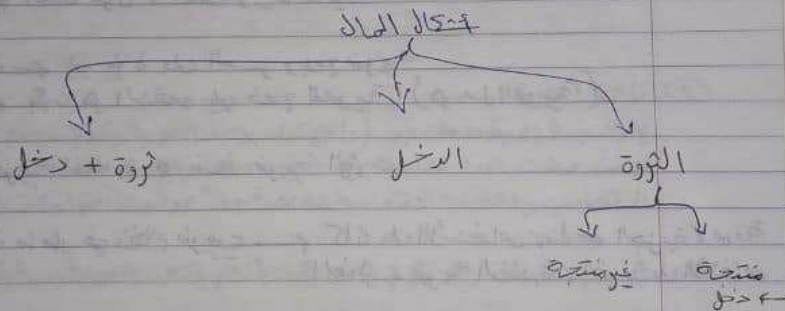 أشكال المال
الثروة الدخل ثروة + دخل
منتجة غير منتجة
← دخل